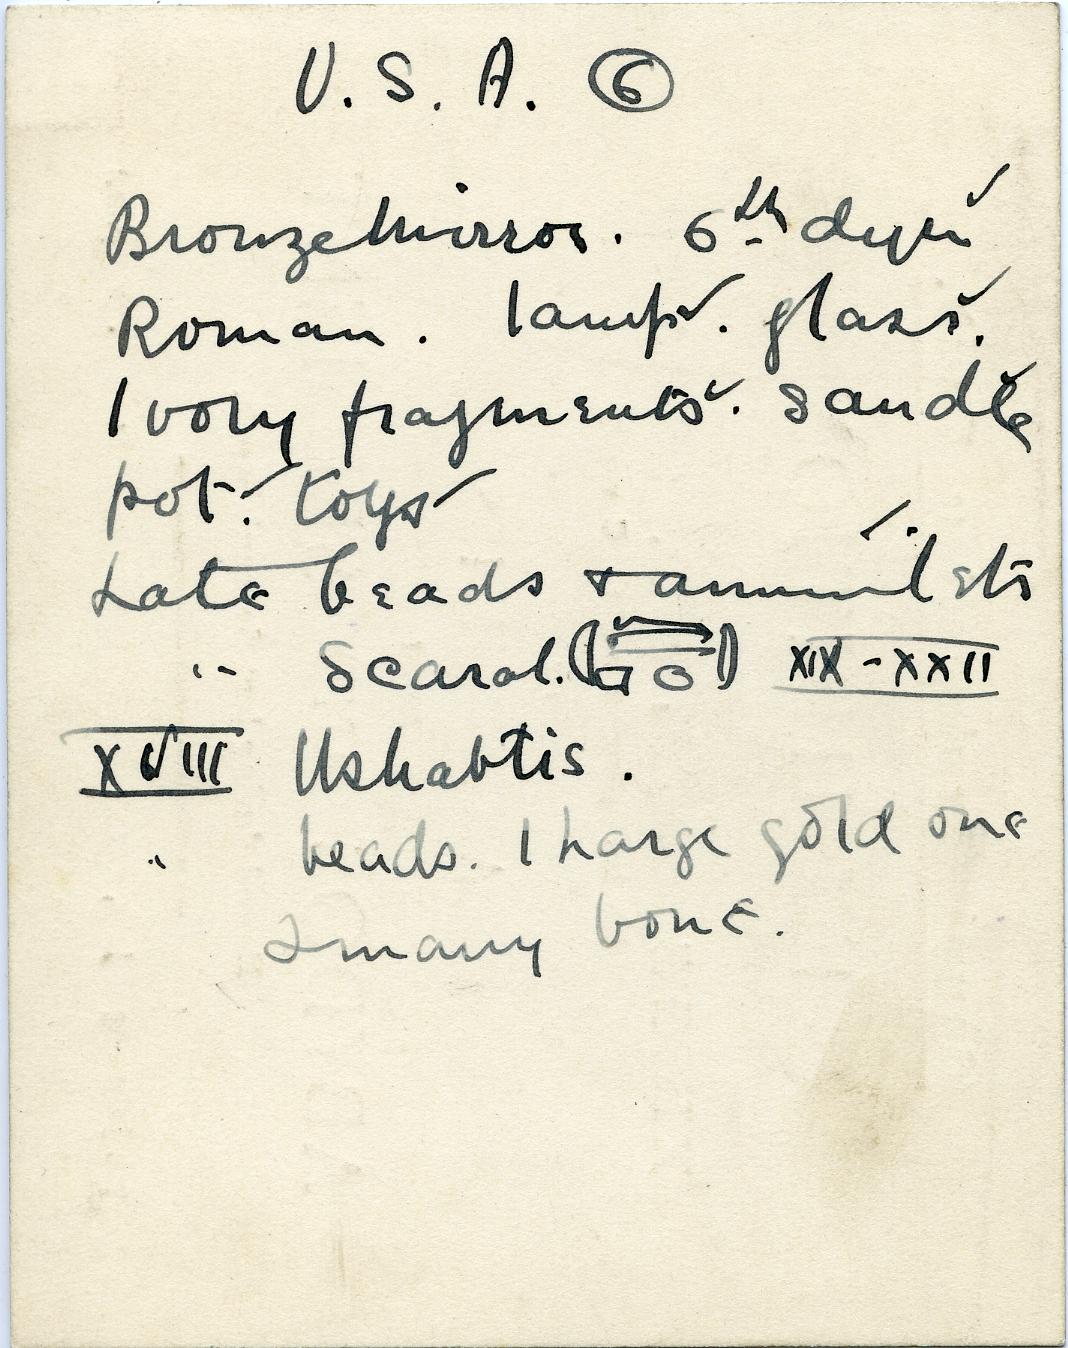 U. S. A. 6
Bronze Mirror. 6th dyn
Roman. lamps. glass.
Ivory fragments. sandle
pot. toys
Late beads + ammulets
" Scarab. XIX - XXII
XVIII Ushabtis.
" beads. 1 large gold one
& many bone.